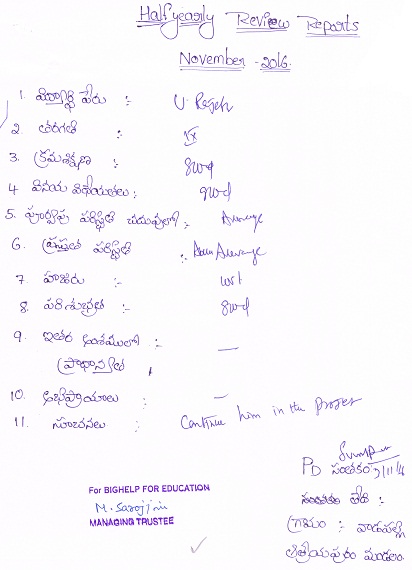 Half yearly Review Reports
November - 2016.
1. విద్యార్థి పేరు :- U. Rajesh
2. తరగతి :- IX
3. క్రమశిక్షణ : good
4 వినయ విధేయతలు :- good
5. పూర్వపు పరిస్థితి చదువులో :- Average
6. ప్రస్తుత పరిస్థితి :- Average
7. హాజరు :-
8. పరిశుభ్రత :- good
9. ఇతర అంశములలో :- —
(ప్రాధాన్యత)
10. అభిప్రాయాలు : —
11. సూచనలు :- Continue him in the project
PD సంతకం
సంతకం తేది :
గ్రామం : వాడపల్లి
ఆత్రేయపురం మండలం.
For BIGHELP FOR EDUCATION
M. Sarojini
MANAGING TRUSTEE